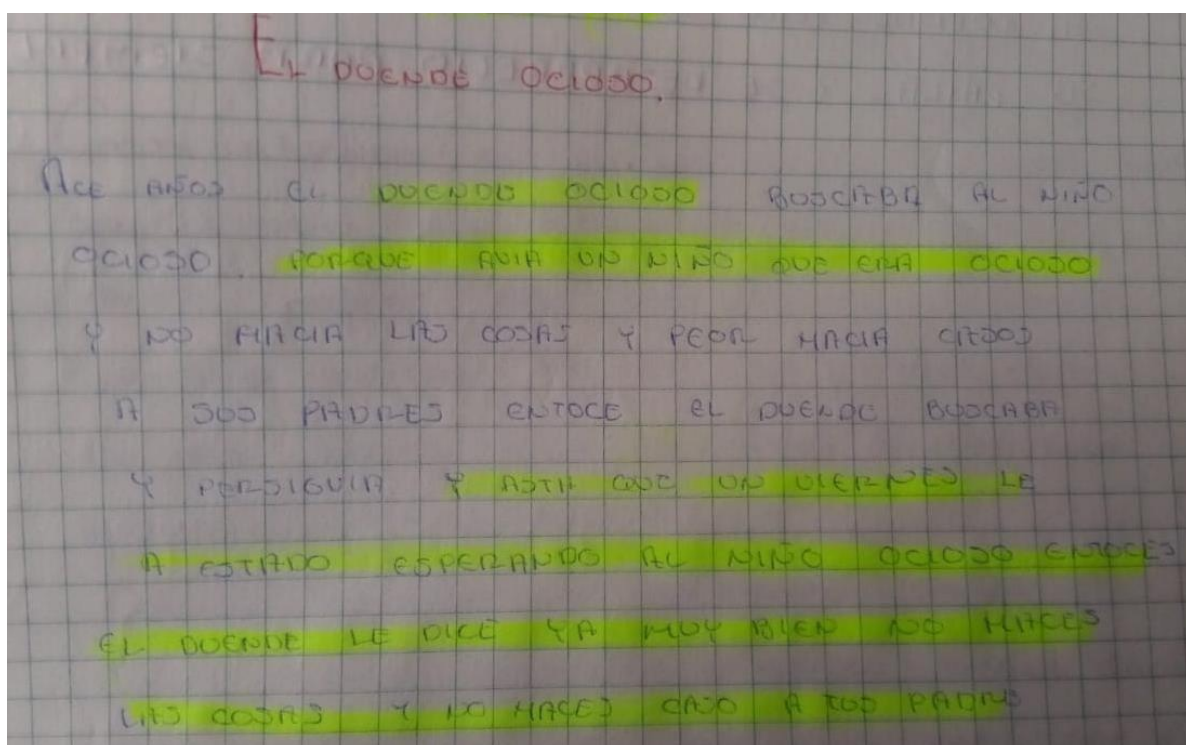 EL DUENDE OCIOSO.
ACE AÑOS EL DUENDO OCIOSO BUSCABA AL NIÑO
OCIOSO. PORQUE AVIA UN NIÑO QUE ERA OCIOSO
Y NO HACIA LAS COSAS Y PEOR HACIA CASOS
A SUS PADRES ENTOCE EL DUENDE BUSCABA
Y PERSIGUIA Y ASTA QUE UN VIERNES LE
A ESTADO ESPERANDO AL NIÑO OCIOSO ENTOCES
EL DUENDE LE DICE YA MUY BIEN NO HACES
LAS COSAS Y NO HACES CASO A TUS PADRES